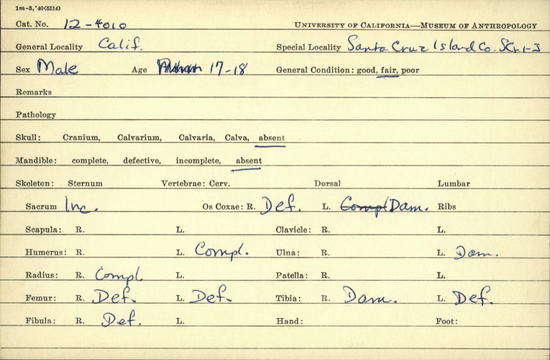 1m-3,'40(3214)
Cat. No. 12-4010 UNIVERSITY OF CALIFORNIA—MUSEUM OF ANTHROPOLOGY
General Locality Calif. Special Locality Santa Cruz Island Co. SCrI-3
Sex Male Age 17-18 General Condition: good, fair, poor
Remarks
Pathology
Skull: Cranium, Calvarium, Calvaria, Calva, absent
Mandible: complete, defective, incomplete, absent
Skeleton: Sternum Vertebrae: Cerv. Dorsal Lumbar
Sacrum Inc. Os Coxae: R. Def. L. Compl Dam. Ribs
Scapula: R. L. Clavicle: R. L.
Humerus: R. L. Compl. Ulna: R. L. Dam.
Radius: R. Compl. L. Patella: R. L.
Femur: R. Def. L. Def. Tibia: R. Dam. L. Def.
Fibula: R. Def. L. Hand: Foot: